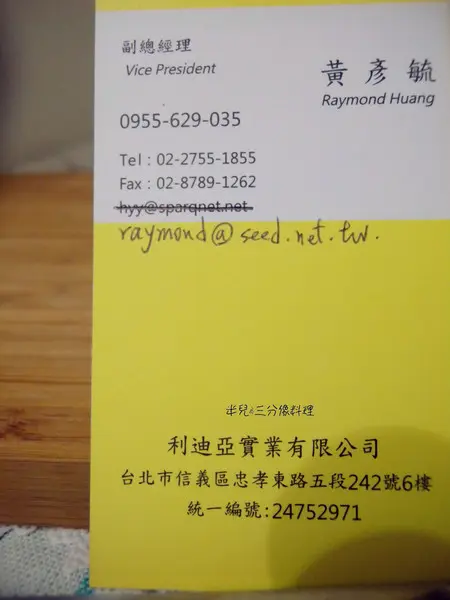 副總經理
Vice President
黃彥毓
Raymond Huang
0955-629-035
Tel：02-2755-1855
Fax：02-8789-1262
hyy@sparqnet.net
raymond@seed.net.tw.
半兒 三分像料理
利迪亞實業有限公司
台北市信義區忠孝東路五段242號6樓
統一編號:24752971